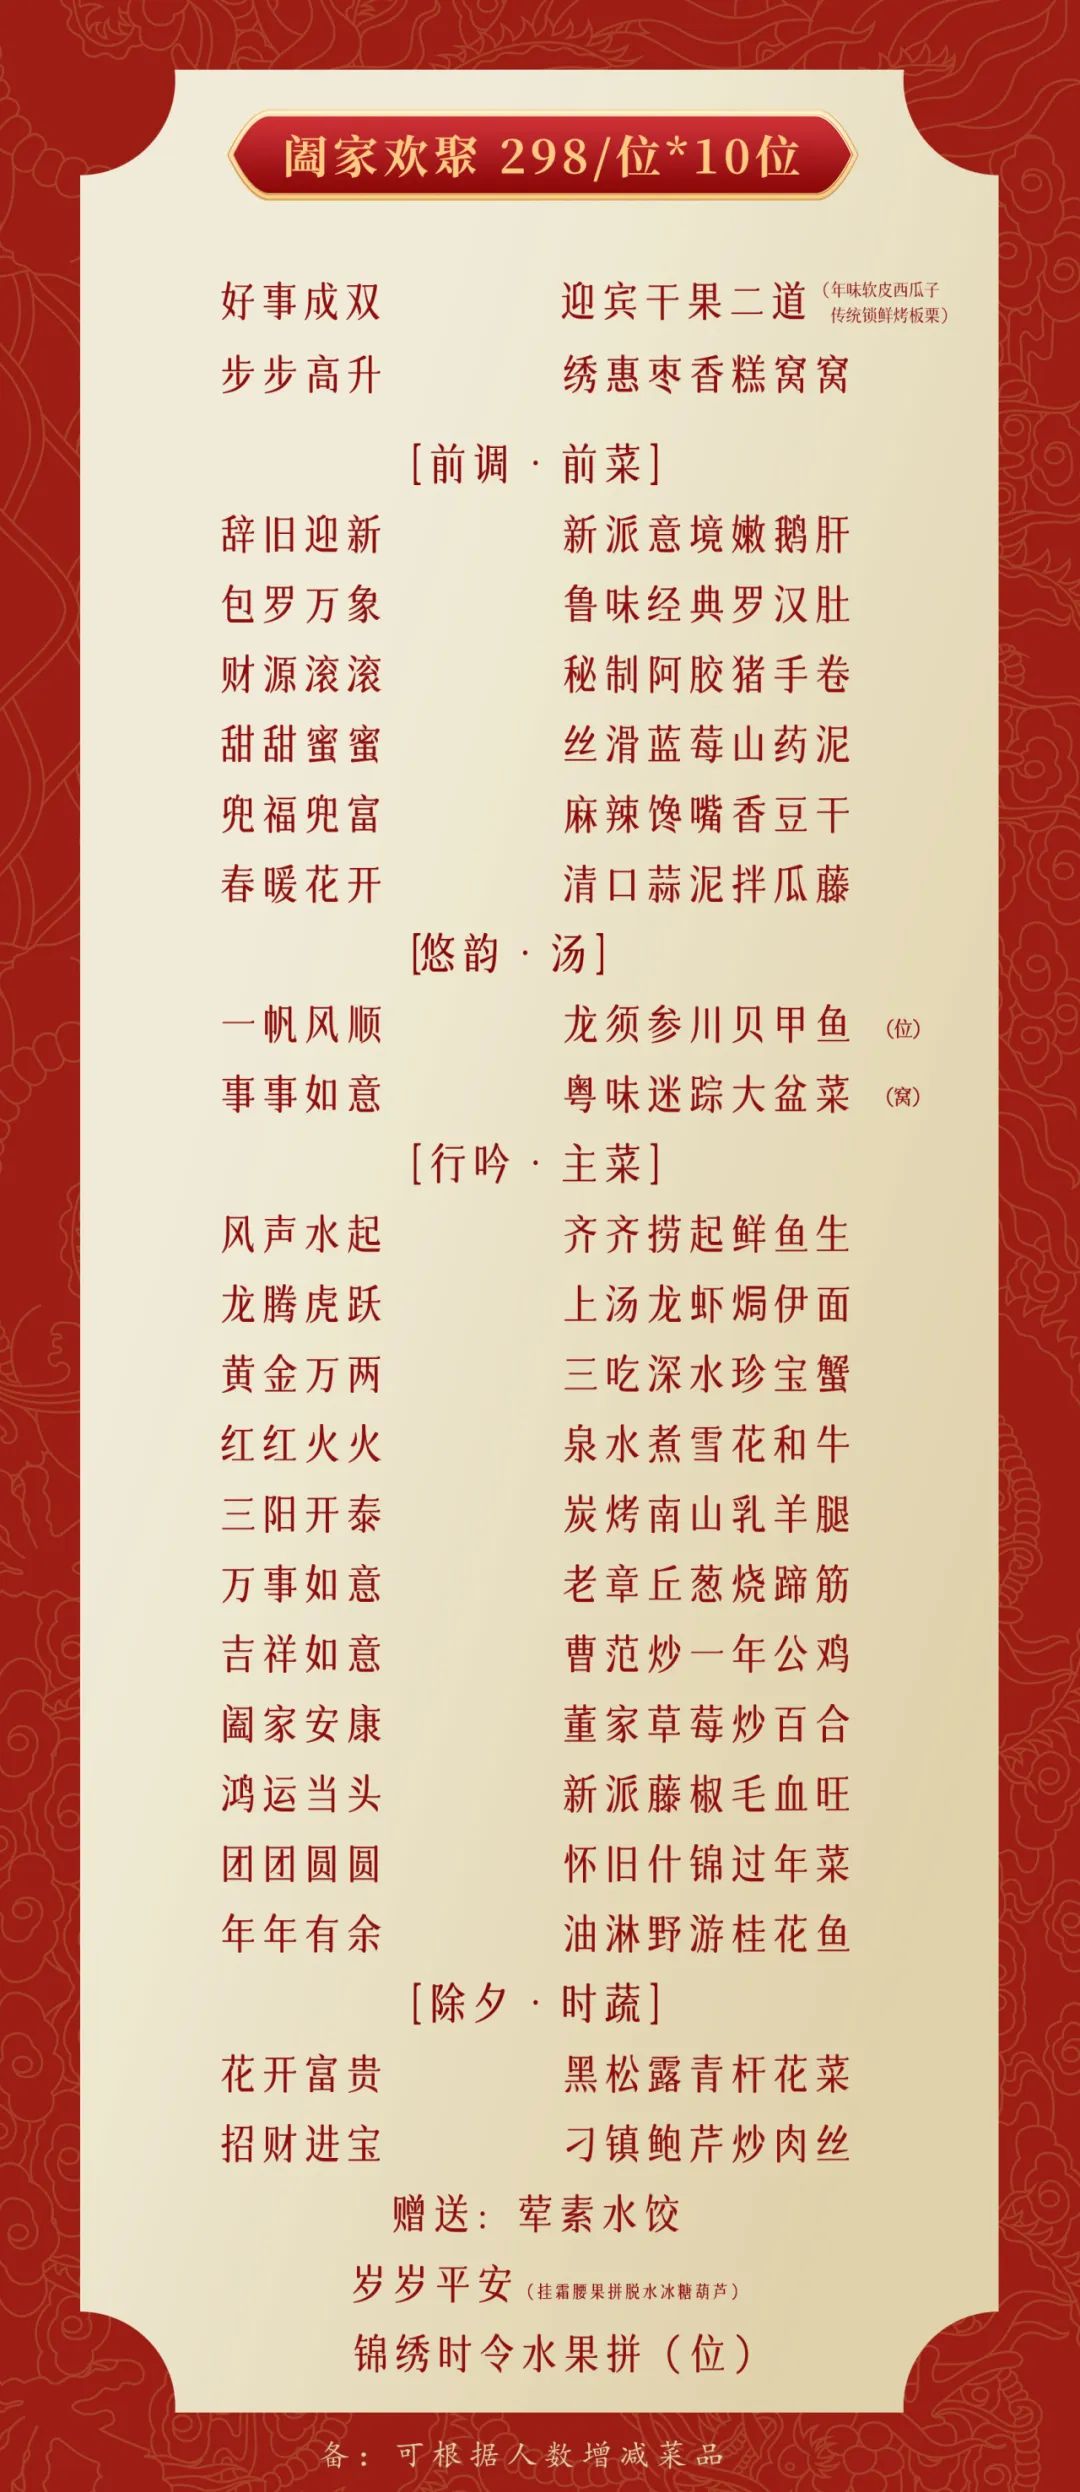 阖家欢聚 298/位*10位
好事成双 迎宾干果二道 (年味软皮西瓜子
传统锁鲜烤板栗)
步步高升 绣惠枣香糕窝窝
[前调·前菜]
辞旧迎新 新派意境嫩鹅肝
包罗万象 鲁味经典罗汉肚
财源滚滚 秘制阿胶猪手卷
甜甜蜜蜜 丝滑蓝莓山药泥
兜福兜富 麻辣馋嘴香豆干
春暖花开 清口蒜泥拌瓜藤
[悠韵·汤]
一帆风顺 龙须参川贝甲鱼 (位)
事事如意 粤味迷踪大盆菜 (窝)
[行吟·主菜]
风声水起 齐齐捞起鲜鱼生
龙腾虎跃 上汤龙虾焗伊面
黄金万两 三吃深水珍宝蟹
红红火火 泉水煮雪花和牛
三阳开泰 炭烤南山乳羊腿
万事如意 老章丘葱烧蹄筋
吉祥如意 曹范炒一年公鸡
阖家安康 董家草莓炒百合
鸿运当头 新派藤椒毛血旺
团团圆圆 怀旧什锦过年菜
年年有余 油淋野游桂花鱼
[除夕·时蔬]
花开富贵 黑松露青杆花菜
招财进宝 刁镇鲍芹炒肉丝
赠送：荤素水饺
岁岁平安（挂霜腰果拼脱水冰糖葫芦）
锦绣时令水果拼（位）
备：可根据人数增减菜品